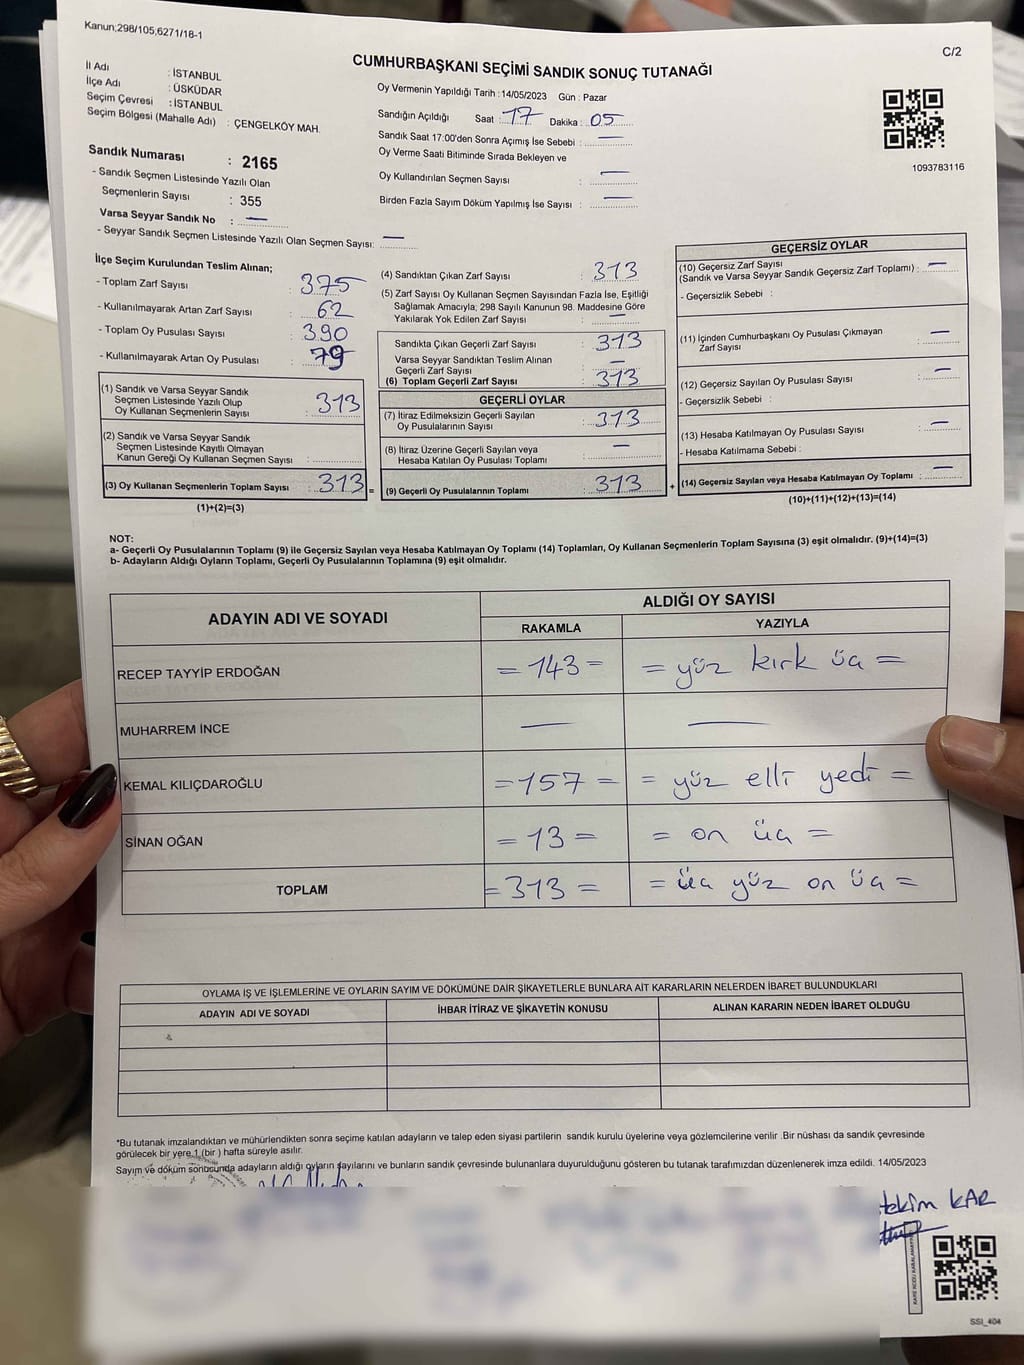 Kanun;298/105,6271/18-1
C/2
CUMHURBAŞKANI SEÇİMİ SANDIK SONUÇ TUTANAĞI
İl Adı : İSTANBUL
İlçe Adı : ÜSKÜDAR
Seçim Çevresi : İSTANBUL
Seçim Bölgesi (Mahalle Adı) : ÇENGELKÖY MAH.
Sandık Numarası : 2165
- Sandık Seçmen Listesinde Yazılı Olan
Seçmenlerin Sayısı : 355
Varsa Seyyar Sandık No : —
- Seyyar Sandık Seçmen Listesinde Yazılı Olan Seçmen Sayısı: —
Oy Vermenin Yapıldığı Tarih : 14/05/2023 Gün : Pazar
Sandığın Açıldığı Saat : 17 Dakika : 05
Sandık Saat 17:00'den Sonra Açımış İse Sebebi : —
Oy Verme Saati Bitiminde Sırada Bekleyen ve
Oy Kullandırılan Seçmen Sayısı : —
Birden Fazla Sayım Döküm Yapılmış İse Sayısı : —
1093783116
İlçe Seçim Kurulundan Teslim Alınan;
- Toplam Zarf Sayısı : 375
- Kullanılmayarak Artan Zarf Sayısı : 62
- Toplam Oy Pusulası Sayısı : 390
- Kullanılmayarak Artan Oy Pusulası : 79
(1) Sandık ve Varsa Seyyar Sandık
Seçmen Listesinde Yazılı Olup
Oy Kullanan Seçmenlerin Sayısı : 313
(2) Sandık ve Varsa Seyyar Sandık
Seçmen Listesinde Kayıtlı Olmayan
Kanun Gereği Oy Kullanan Seçmen Sayısı :
(3) Oy Kullanan Seçmenlerin Toplam Sayısı : 313 =
(1)+(2)=(3)
(4) Sandıktan Çıkan Zarf Sayısı : 313
(5) Zarf Sayısı Oy Kullanan Seçmen Sayısından Fazla İse, Eşitliği
Sağlamak Amacıyla; 298 Sayılı Kanunun 98. Maddesine Göre
Yakılarak Yok Edilen Zarf Sayısı : —
Sandıkta Çıkan Geçerli Zarf Sayısı : 313
Varsa Seyyar Sandıktan Teslim Alınan
Geçerli Zarf Sayısı : —
(6) Toplam Geçerli Zarf Sayısı : 313
GEÇERLİ OYLAR
(7) İtiraz Edilmeksizin Geçerli Sayılan
Oy Pusulalarının Sayısı : 313
(8) İtiraz Üzerine Geçerli Sayılan veya
Hesaba Katılan Oy Pusulası Toplamı : —
(9) Geçerli Oy Pusulalarının Toplamı : 313 +
GEÇERSİZ OYLAR
(10) Geçersiz Zarf Sayısı
(Sandık ve Varsa Seyyar Sandık Geçersiz Zarf Toplamı) : —
- Geçersizlik Sebebi :
(11) İçinden Cumhurbaşkanı Oy Pusulası Çıkmayan
Zarf Sayısı : —
(12) Geçersiz Sayılan Oy Pusulası Sayısı : —
- Geçersizlik Sebebi :
(13) Hesaba Katılmayan Oy Pusulası Sayısı : —
- Hesaba Katılmama Sebebi :
(14) Geçersiz Sayılan veya Hesaba Katılmayan Oy Toplamı : —
(10)+(11)+(12)+(13)=(14)
NOT:
a- Geçerli Oy Pusulalarının Toplamı (9) ile Geçersiz Sayılan veya Hesaba Katılmayan Oy Toplamı (14) Toplamları, Oy Kullanan Seçmenlerin Toplam Sayısına (3) eşit olmalıdır. (9)+(14)=(3)
b- Adayların Aldığı Oyların Toplamı, Geçerli Oy Pusulalarının Toplamına (9) eşit olmalıdır.
ADAYIN ADI VE SOYADI ALDIĞI OY SAYISI
RAKAMLA YAZIYLA
RECEP TAYYİP ERDOĞAN = 143 = = yüz kırk üç =
MUHARREM İNCE — —
KEMAL KILIÇDAROĞLU = 157 = = yüz elli yedi =
SİNAN OĞAN = 13 = = on üç =
TOPLAM = 313 = = üç yüz on üç =
OYLAMA İŞ VE İŞLEMLERİNE VE OYLARIN SAYIM VE DÖKÜMÜNE DAİR ŞİKAYETLERLE BUNLARA AİT KARARLARIN NELERDEN İBARET BULUNDUKLARI
ADAYIN ADI VE SOYADI İHBAR İTİRAZ VE ŞİKAYETİN KONUSU ALINAN KARARIN NEDEN İBARET OLDUĞU
*Bu tutanak imzalandıktan ve mühürlendikten sonra seçime katılan adayların ve talep eden siyasi partilerin sandık kurulu üyelerine veya gözlemcilerine verilir .Bir nüshası da sandık çevresinde
görülecek bir yere 1 (bir ) hafta süreyle asılır.
Sayım ve döküm sonucunda adayların aldığı oyların sayılarını ve bunların sandık çevresinde bulunanlara duyurulduğunu gösteren bu tutanak tarafımızdan düzenlenerek imza edildi. 14/05/2023
KAR
SSI_404